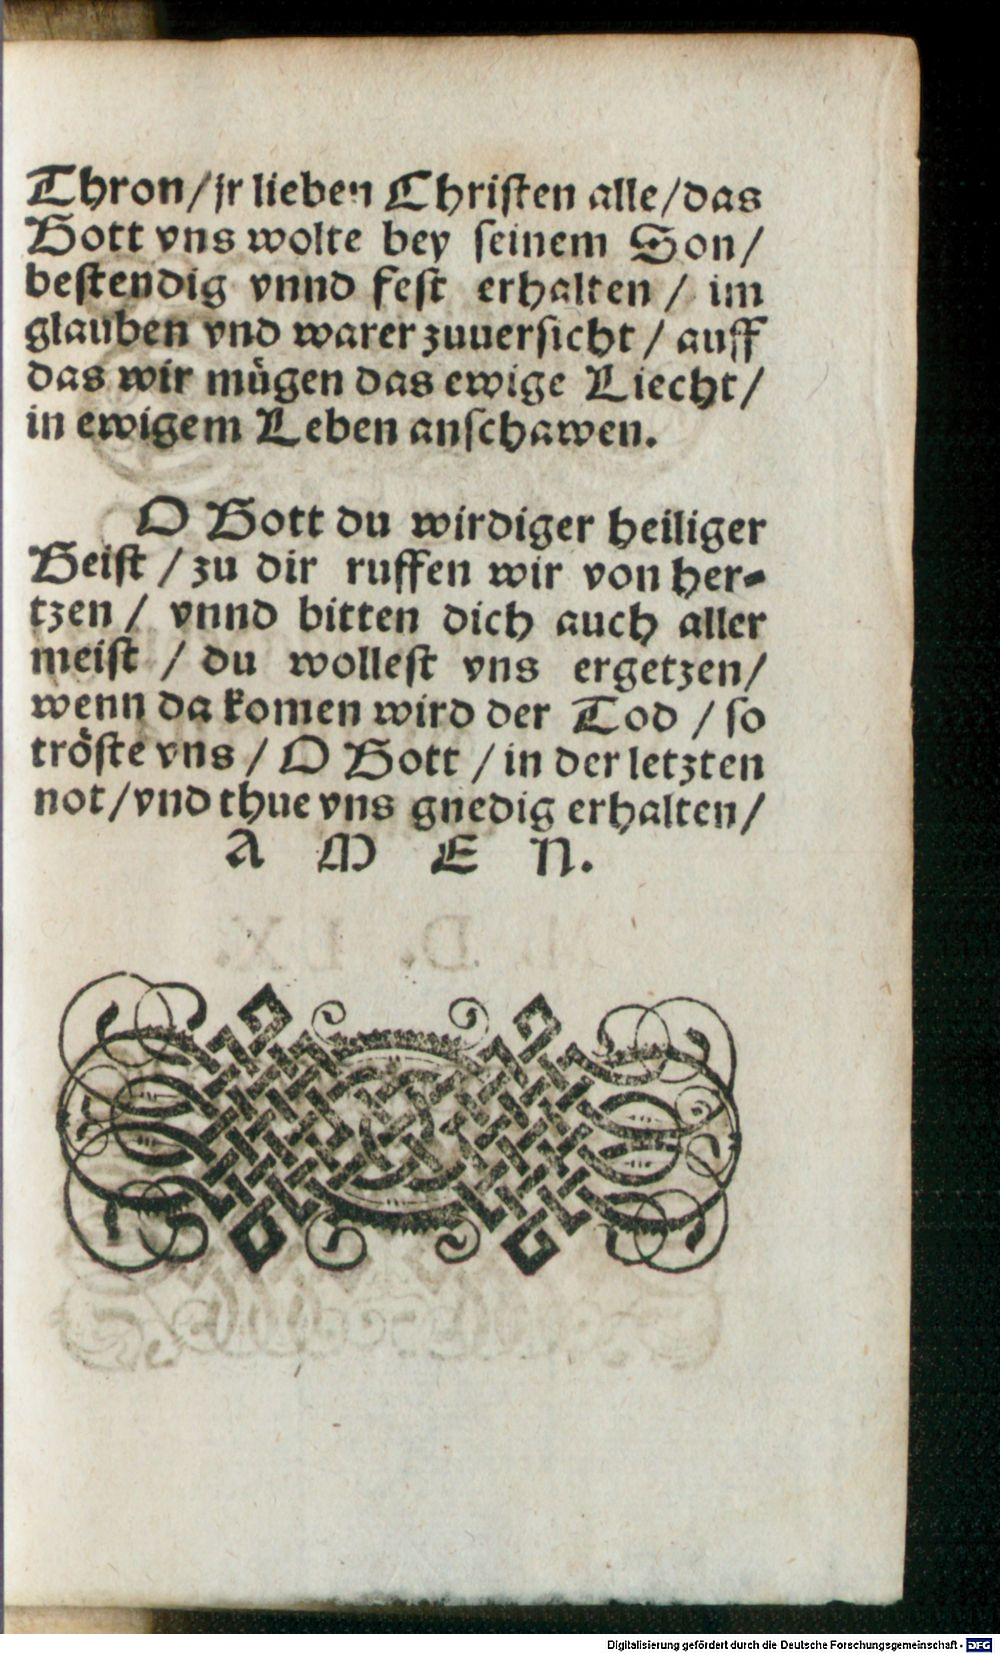 Thron/jr lieben Christen alle/das
Gott vns wolte bey seinem Son/
bestendig vnnd fest erhalten / im
glauben vnd warer zuuersicht / auff
das wir mügen das ewige Liecht/
in ewigem Leben anschawen.
O Gott du wirdiger heiliger
Geist / zu dir ruffen wir von her-
tzen / vnnd bitten dich auch aller
meist / du wollest vns ergetzen/
wenn da komen wird der Tod / so
tröste vns / O Gott / in der letzten
not/vnd thue vns gnedig erhalten/
A M E N.
M. D. LX.
Digitalisierung gefördert durch die Deutsche Forschungsgemeinschaft - DFG